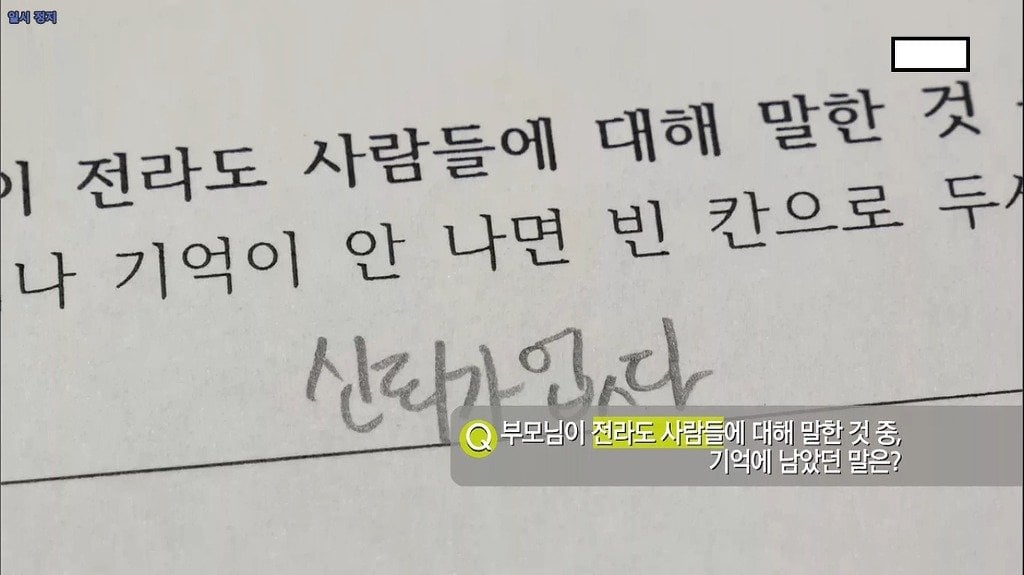 일시 정지
이 전라도 사람들에 대해 말한 것
나 기억이 안 나면 빈 칸으로
신뢰가 없다
Q 부모님이 전라도 사람들에 대해 말한 것 중,
기억에 남았던 말은?